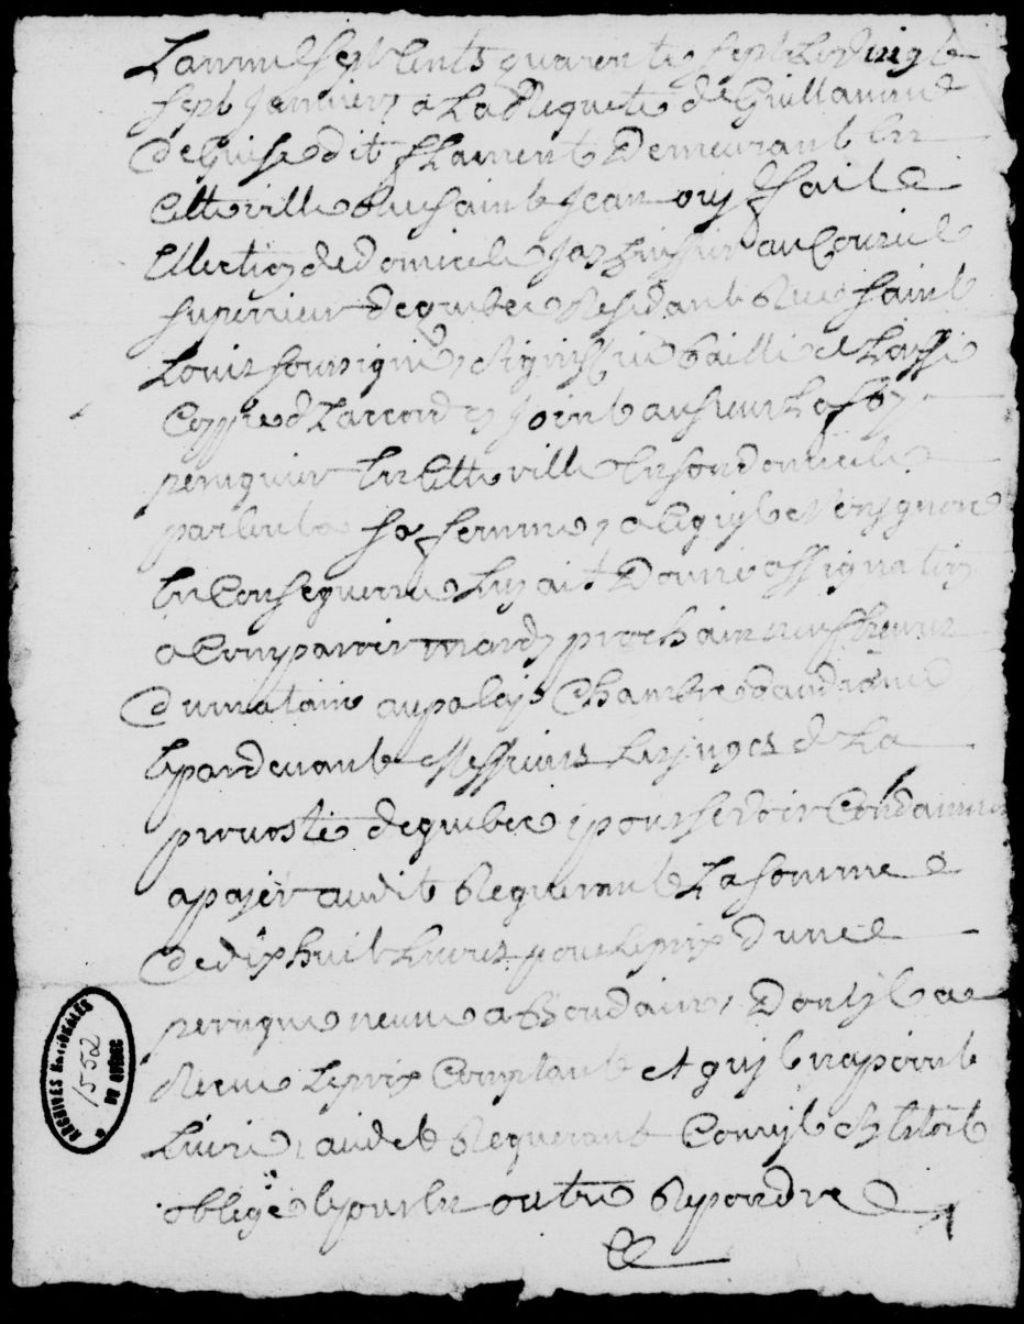 Lannmil sept Cents quarente sept Le vingte
sept Janvier, a La Requete de Guillaume
de Guise dit fLament Demeurant En
Cette ville Rue saint Jean ouy Isaile
Ellection de domicele Jay huissier au Conseil
superrieur de quebec Residant Rue saint
Louis soussigné, signiffié baillé et Laissé
Coppie d Lacord cy joint au sieur Lafoy
peruquier En Cette ville En son domicile
parlent a sa femme, a Ce quil Nen Ignore
En Consequence Luy ait Donné assignation
a Comparoir mardy prochain neuf heures
du matain au palais Chambre daudiance
Epardevant Messieurs Les juges de La
prevosté de quebec, pour se voir Condamné
a payer audit Requerant La somme
de dix huit Livres pour Le prix dune
peruque neuve a Boudain, Dont jl a
Receu Le prix Comptant et quil na point
Livré, audit Requerant Comme jl Sestoit
obligé Epour En outre Repondre